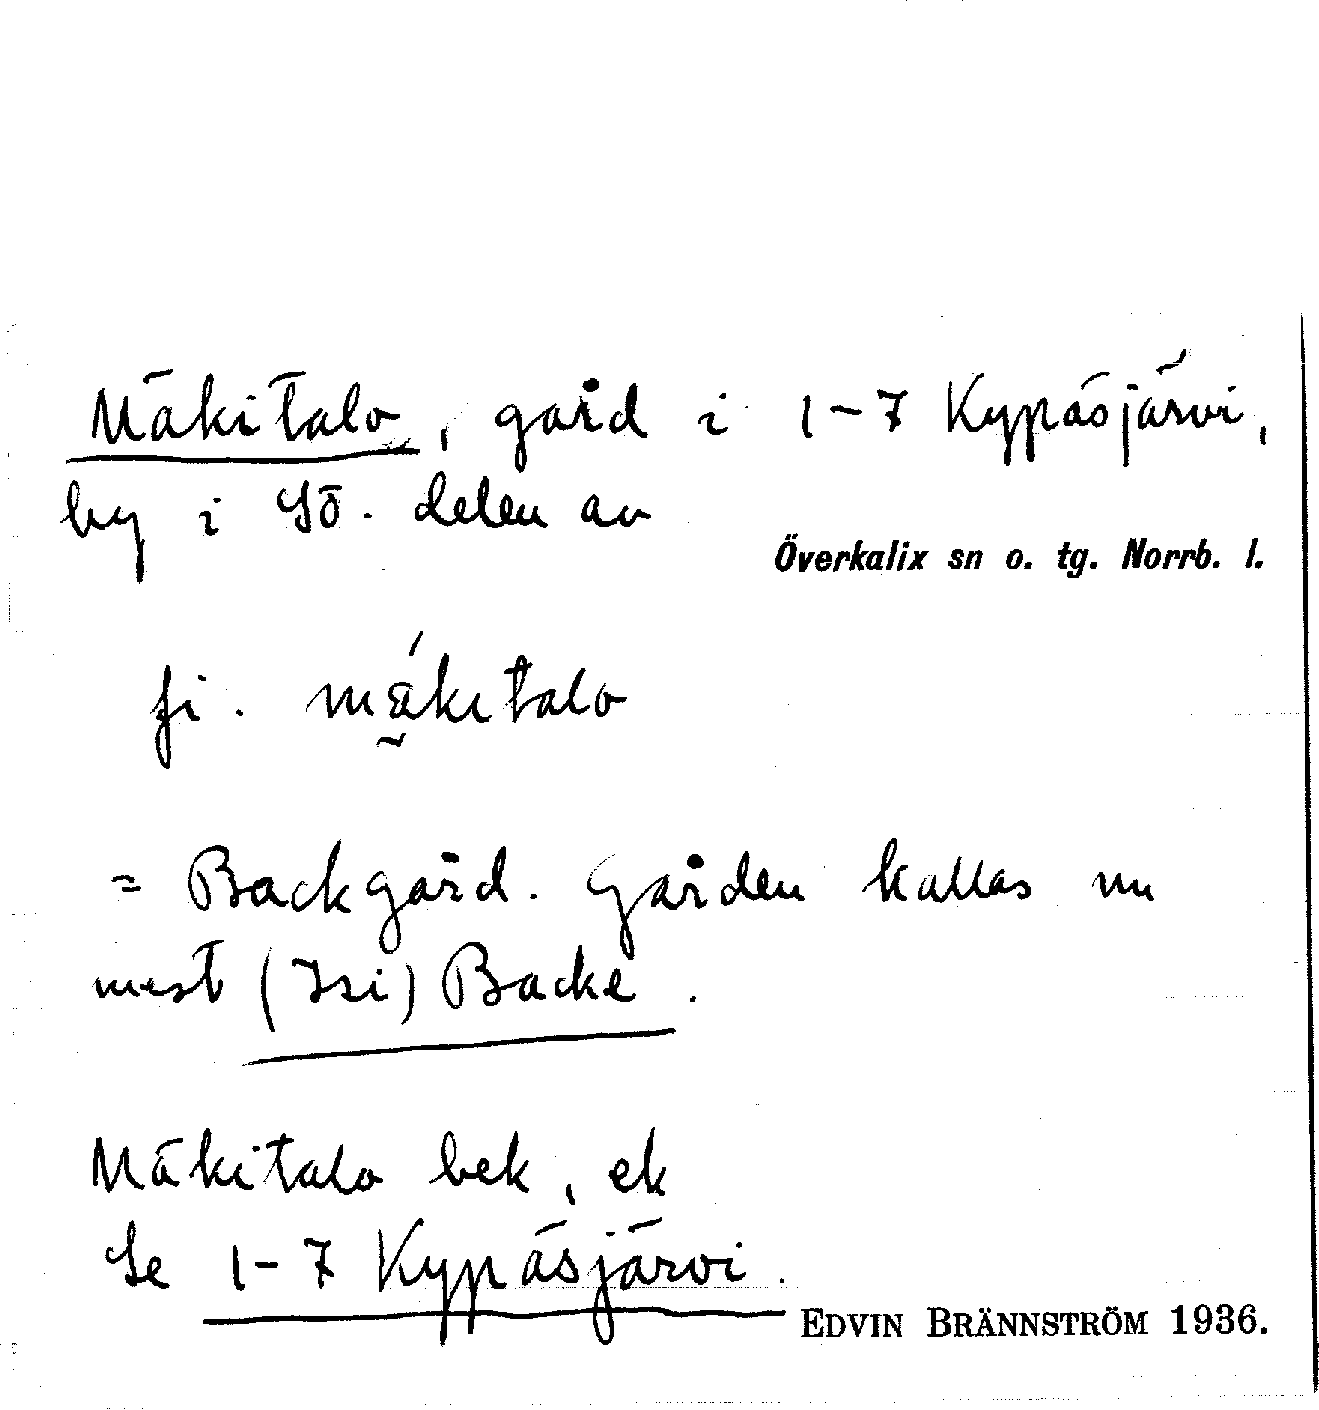 Mäkitalo, gård i 1-7 Kypäsjärvi,
by i Sö. delen av
Överkalix sn o. tg. Norrb. l.
fi. mäkitalo
= Backgård. Gården kallas nu
mest (Isi) Backe.
Mäkitalo bek, ek
Se 1-7 Kypäsjärvi.
EDVIN BRÄNNSTRÖM 1936.